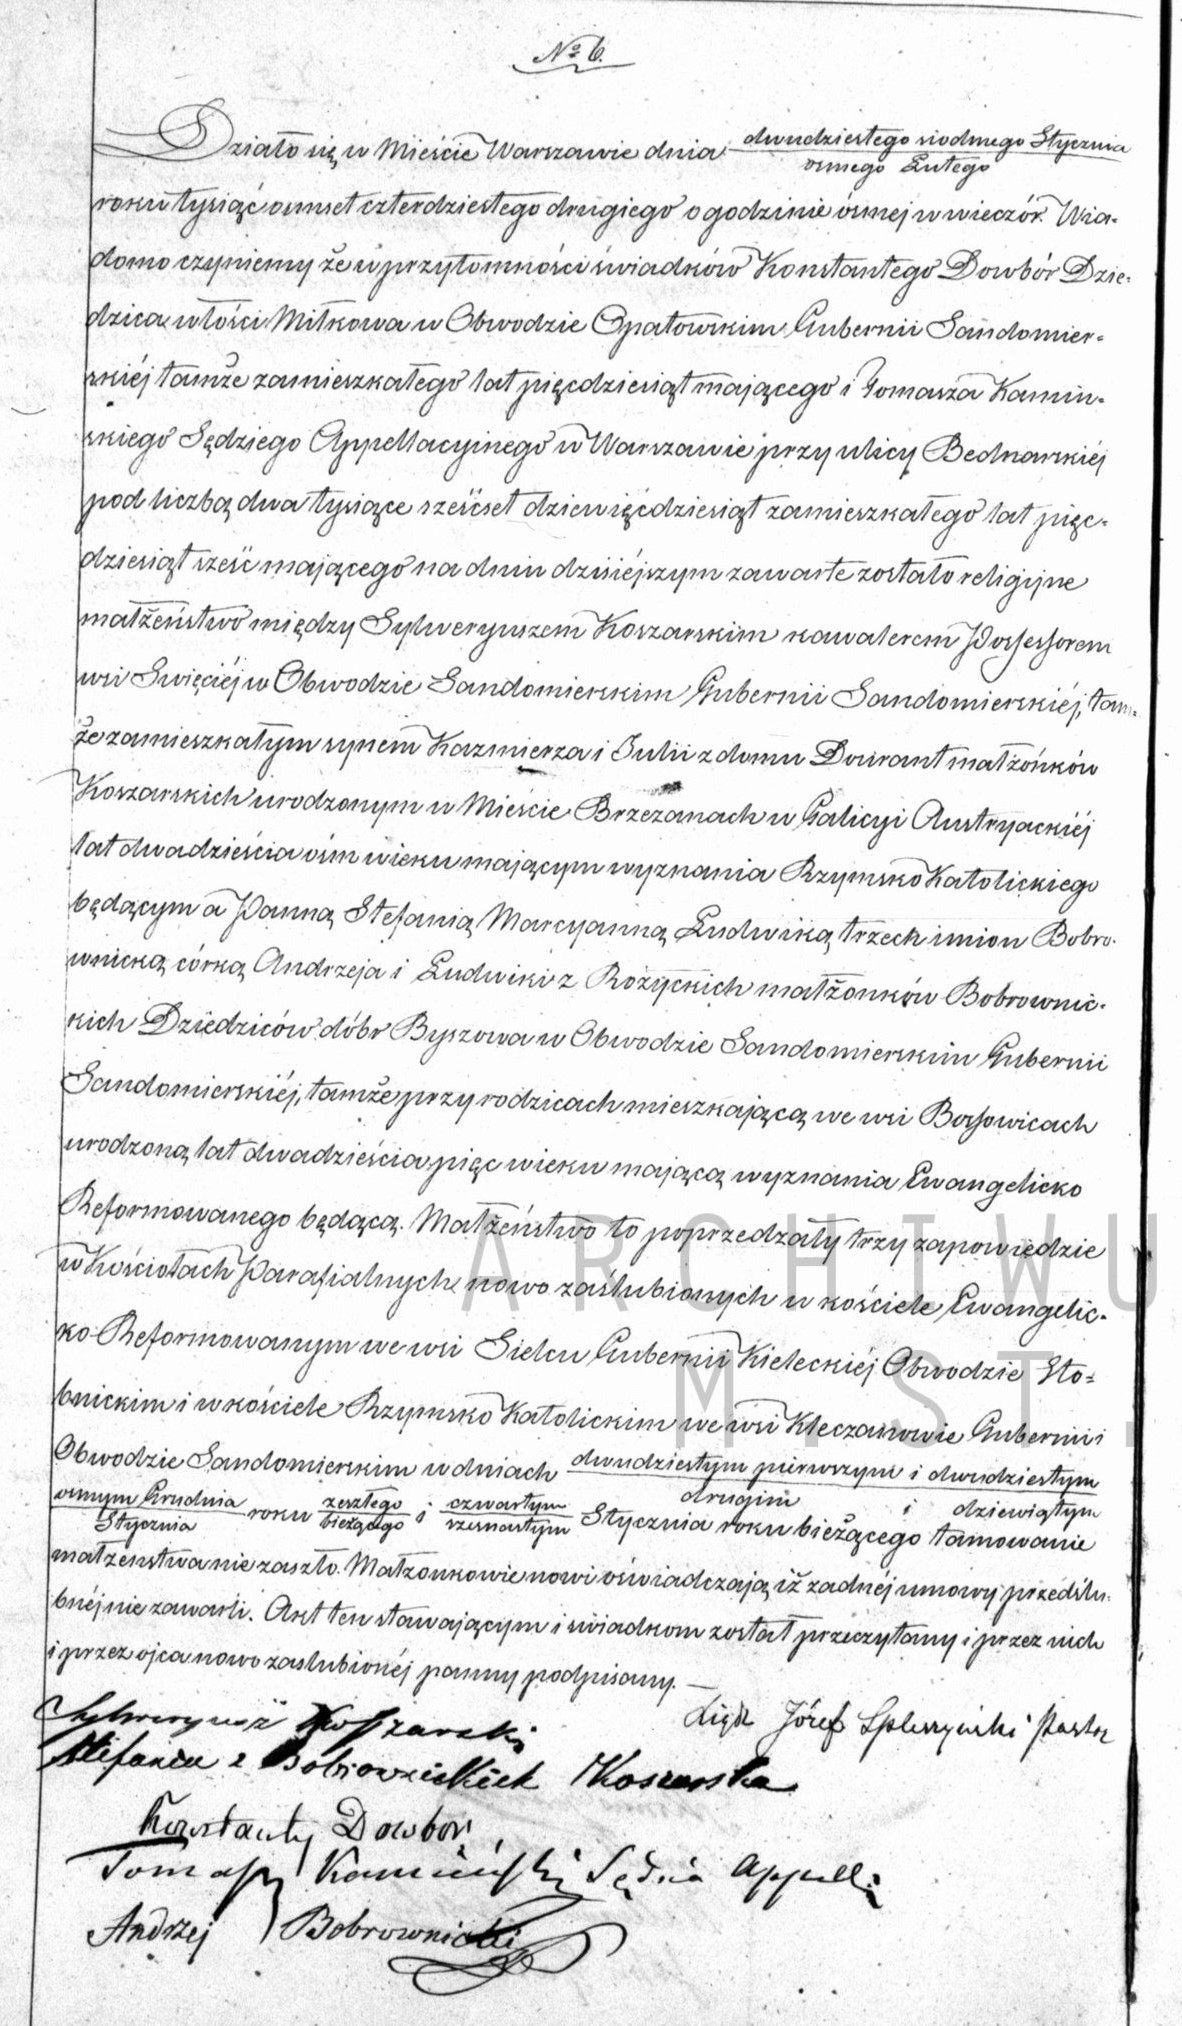 № 6.
Działo się w Mieście Warszawie dnia dwudziestego siodmego Stycznia
osmego Lutego
roku tysiąć osmset czterdziestego drugiego o godzinie ósmej w wieczór. Wia-
domo czyniemy że w przytomności świadków Konstantego Dowbór Dzie-
dzica włości Miłkowa w Obwodzie Opatowskim Gubernii Sandomier-
skiéj tamże zamieszkałego lat pięcdziesiąt mającego i Tomasza Kamin-
skiego Sędziego Appellacyjnego w Warszawie przy ulicy Bednarskiéj
pod liczbą dwa tysiące sześćset dziewięćdziesiąt zamieszkałego lat pięc-
dziesiąt sześć mającego na dniu dzisiéjszym zawarte zostało religijne
małżeństwo między Sylweryuszem Koszarskim kawalerem Possessorem
wsi Swięciéj w Obwodzie Sandomierskim Gubernii Sandomierskiéj, tam-
że zamieszkałym synem Kazmierza i Julii z domu Dourant małżónków
Koszarskich urodzonym w Mieście Brzezanach w Galicyi Austryackiéj
lat dwadzieścia ośm wieku mającym wyznania Rzymsko Katolickiego
będącym a Panną Stefanią Marcyanną Ludwiką trzech imion Bobro-
wnicką córką Andrzeja i Ludwiki z Rożyckich małżonków Bobrownic-
kich Dziedziców dóbr Byszowa w Obwodzie Sandomierskim Gubernii
Sandomierskiéj, tamże przy rodzicach mieszkającą we wsi Bossowicach
urodzoną lat dwadzieścia pięc wieku mającą wyznania Ewangelicko
Reformowanego będącą. Małżeństwo to poprzedzały trzy zapowiedzie
w Kościołach Parafialnych nowo zaślubionych w kościele Ewangelic-
ko-Reformowanym we wsi Sielcu Gubernii Kieleckiéj Obwodzie Sto-
bnickim i w kościele Rzymsko Katolickim we wsi Kleczanowie Gubernii
Obwodzie Sandomierskim w dniach dwudziestym pierwszym i dwudziestym
osmym Grudnia roku zeszłego i czwartym drugim i dziewiątym
Stycznia bieżącego szesnastym Stycznia roku bieżącego tamowanie
małzenstwa nie zaszło. Małzonkowie nowi oświadczają iż żadnéj umowy przedślu-
bnéj nie zawarli. Akt ten stawającym i świadkom został przeczytany i przez nich
i przez ojca nowo zaslubionéj panny podpisany.
Sylweryusz Koszarski
Xiądz Józef Spleszyński Pastor
Stefania z Bobrownickich Koszarska
Konstanty Dowbor
Tomasz Kamiński Sędzia Appell:
Andrzej Bobrownicki
ARCHIWU
M. ST.